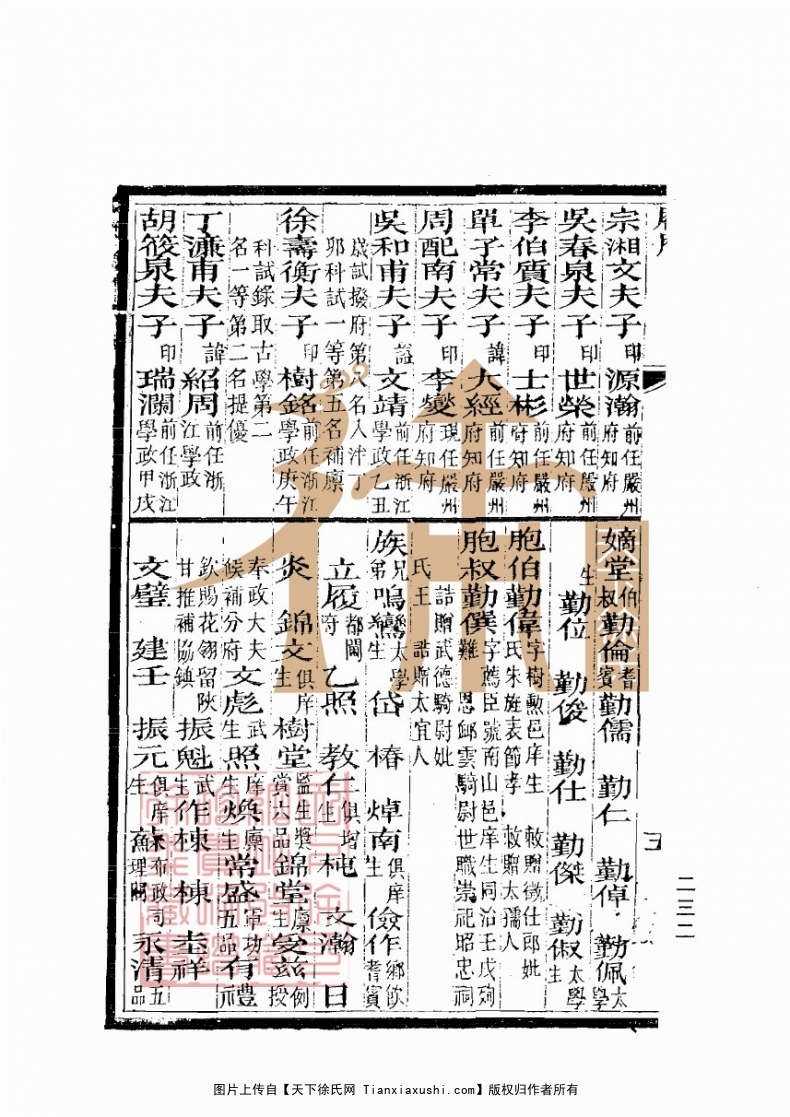 宗湘文夫子印源瀚前任嚴州府知府
吳春泉夫子印世榮前任嚴州府知府
李伯質夫子印士彬前任嚴州府知府
單子常夫子諱大經前任嚴州府知府
周配南夫子印李燮現任嚴州府知府
吳和甫夫子諡文靖前任浙江學政乙丑
歲試撥府第八名入泮丁
卯科試一等第五名補廪
徐壽衡夫子印樹銘前任浙江學政庚午
科試錄取古學第二
名一等第二名提優
丁濂甫夫子諱紹周前任浙江學政
胡筱泉夫子印瑞瀾前任浙江學政甲戌
嫡堂伯叔勤倫耆賓勤儒 勤仁 勤倬 勤佩太學
生勤位 勤俊 勤仕 勤傑 勤俶太學生
胞伯勤偉字樹勲邑庠生 敕贈徵仕郎妣氏朱旌表節孝 敕贈太孺人
胞叔勤僕字薦臣號南山邑庠生同治壬戌殉難 恩卹雲騎尉世職崇祀昭忠祠
誥贈武德騎尉妣
氏王 誥贈太宜人
族兄弟鳴鸞太學生 岱 椿 焯南俱庠生 儉作鄉飲耆賓
立履都閫府 乙照 教仁二俱增生 杶 文瀚 日
炎 錦文俱庠生 樹堂監生獎賞六品 錦堂廪生 受兹例授
奉政大夫候補分府 文彪武生 照庠生 煥廪生 常盛軍功五品 有禮
欽賜花翎留陝甘推補協鎮 振魁武生 作棟 棟 圭祥
文璧 建壬 振元俱庠生 蘇布政司理問 永清五品
二三二
图片上传自【天下徐氏网 Tianxiaxushi.com】版权归作者所有